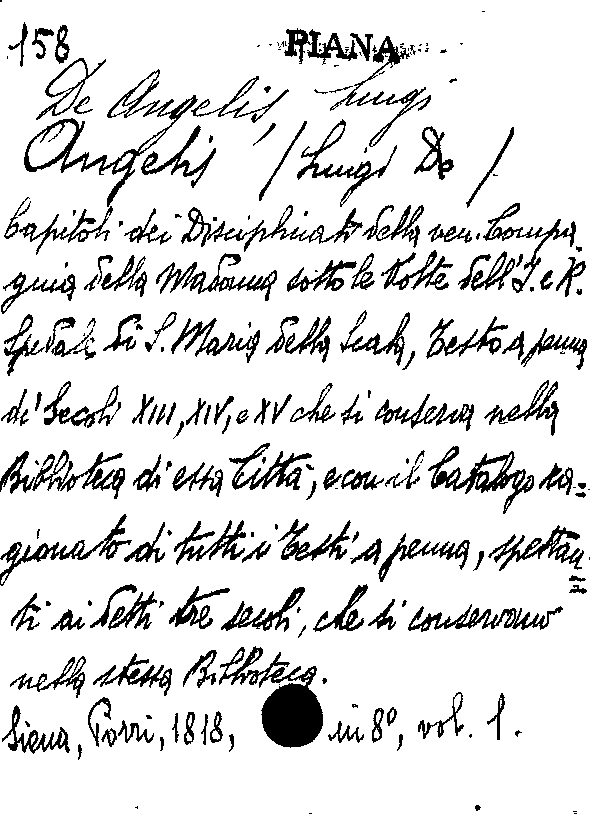 158 PIANA
De Angelis, Luigi
Angelis / Luigi De /
Capitoli dei Disciplinati della ven. Compa-
gnia della Madonna sotto le Volte dell'I. e R.
Spedale di S. Maria della Scala, Testo a penna
di Secoli XIII, XIV, e XV che si conserva nella
Biblioteca di essa Città, e con il Catalogo ra=
gionato di tutti i Testi a penna, spettan=
ti ai detti tre secoli, che si conservano
nella stessa Biblioteca.
Siena, Porri, 1818, in 8º, vol. 1.